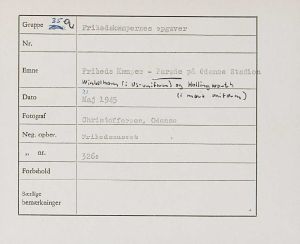 Gruppe 35 a Frihedskæmpernes opgaver
Nr.
Emne Friheds Kæmper - Parade på Odense Stadion
Winkelhorn (i US-uniform) og Hollingworth
(i mørk uniform)
Dato Maj 1945
Fotograf Christoffersen, Odense
Neg. opher. Frihedsmuseet
„ nr. 326:
Forbehold
Særlige
bemærkninger